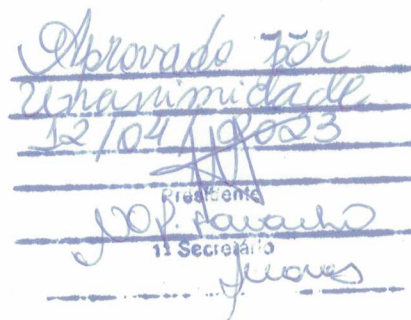 Aprovado por
Unanimidade
12/04/2023
Presidente
1º Secretário